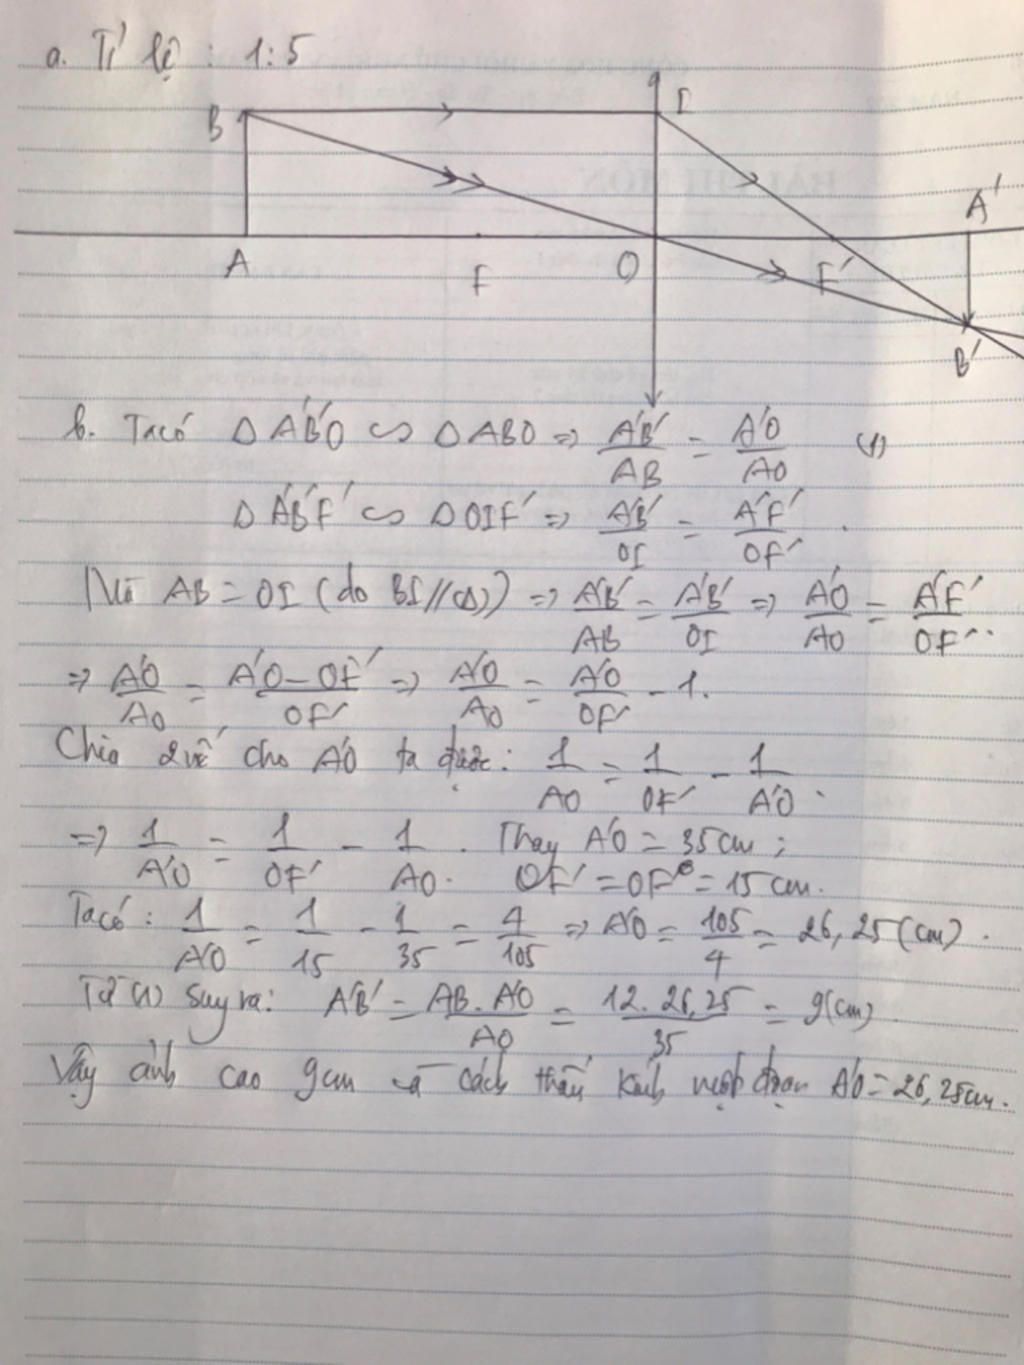 a. Tỉ lệ : 1:5
B I
A'
A F O F'
B'
b. Ta có Δ A'B'O ∽ Δ ABO => A'B'/AB = A'O/AO (1)
Δ A'B'F' ∽ Δ OIF' => A'B'/OI = A'F'/OF' .
Mà AB = OI (do BI//(Δ)) => A'B'/AB = A'B'/OI => A'O/AO = A'F'/OF' .
=> A'O/AO = A'O - OF'/OF' => A'O/AO = A'O/OF' - 1.
Chia 2 vế cho A'O ta được: 1/AO = 1/OF' - 1/A'O .
=> 1/A'O = 1/OF' - 1/AO . Thay A'O = 35cm ;
OF' = OF = 15cm.
Ta có : 1/A'O = 1/15 - 1/35 = 4/105 => A'O = 105/4 = 26,25 (cm) .
Từ (1) suy ra: A'B' = AB . A'O/AO = 12. 26,25/35 = 9(cm)
Vậy ảnh cao 9cm và cách thấu kính một đoạn A'O = 26,25cm.